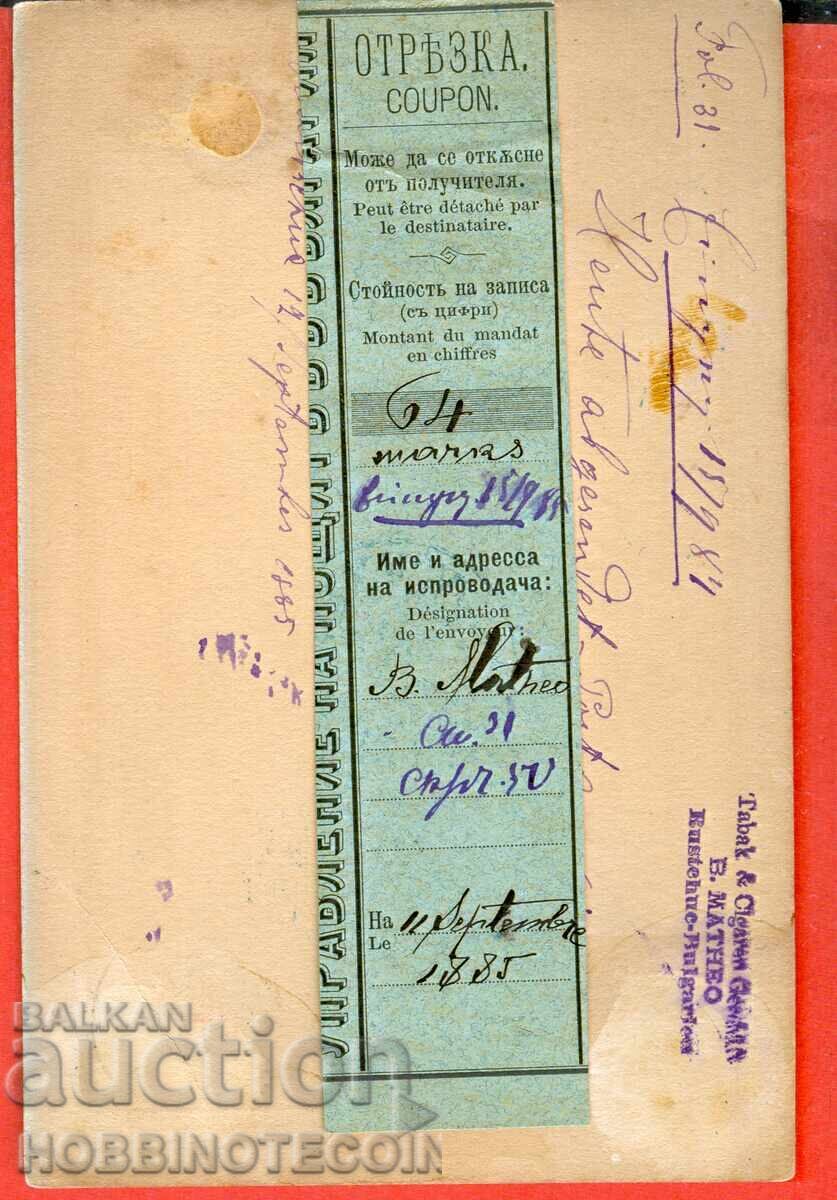 ОТРѢЗКА.
COUPON.
Може да се откѫсне
отъ получителя.
Peut être détaché par
le destinataire.
Стойность на записа
(съ цифри)
Montant du mandat
en chiffres
64
marks
15/9 85
Име и адресса
на испроводача:
Désignation
de l'envoyeur:
B. Matheo
На 11 Septembre
Le
1885
УПРАВЛЕНИЕ НА ПОЩИ
Fol. 31.
Heute abgesendet
12. September 1885
Tabak &
B. MATHEO
Rustchuc-Bulgarien
BALKAN
auction
HOBBINOTECOIN